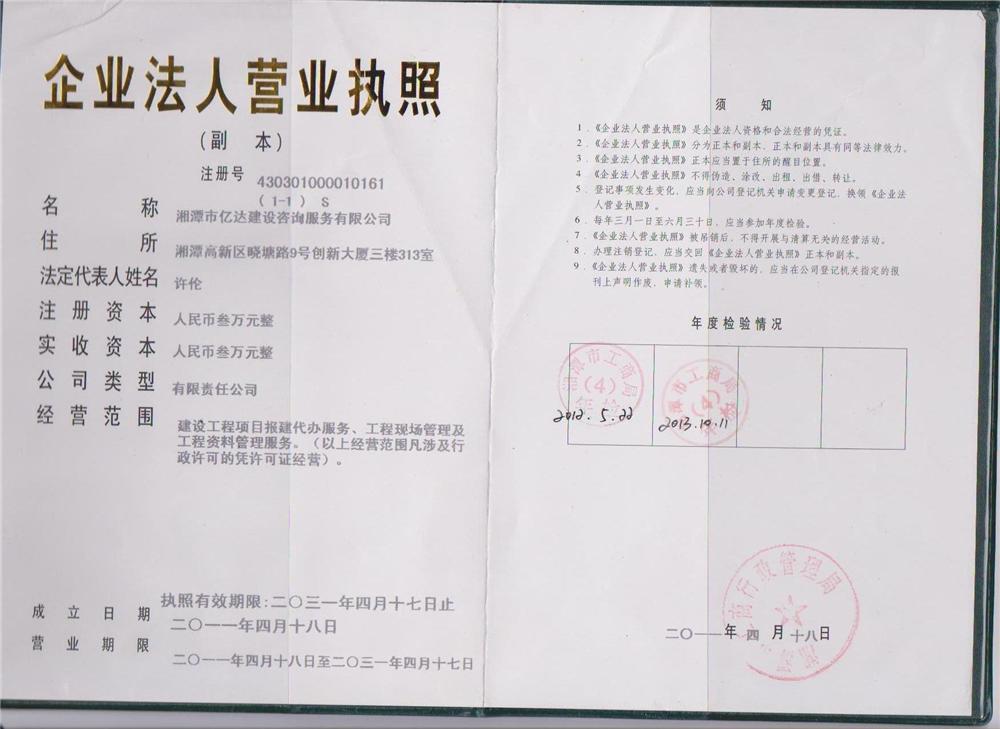 企业法人营业执照
（副 本）
注册号 430301000010161
（1-1） S
名 称 湘潭市亿达建设咨询服务有限公司
住 所 湘潭高新区晓塘路9号创新大厦三楼313室
法定代表人姓名 许伦
注 册 资 本 人民币叁万元整
实 收 资 本 人民币叁万元整
公 司 类 型 有限责任公司
经 营 范 围 建设工程项目报建代办服务、工程现场管理及
工程资料管理服务。（以上经营范围凡涉及行
政许可的凭许可证经营）。
执照有效期限:二〇三一年四月十七日止
成 立 日 期 二〇一一年四月十八日
营 业 期 限 二〇一一年四月十八日至二〇三一年四月十七日
须 知
1．《企业法人营业执照》是企业法人资格和合法经营的凭证。
2．《企业法人营业执照》分为正本和副本，正本和副本具有同等法律效力。
3．《企业法人营业执照》正本应当置于住所的醒目位置。
4．《企业法人营业执照》不得伪造、涂改、出租、出借、转让。
5．登记事项发生变化，应当向公司登记机关申请变更登记，换领《企业法
人营业执照》。
6．每年三月一日至六月三十日，应当参加年度检验。
7．《企业法人营业执照》被吊销后，不得开展与清算无关的经营活动。
8．办理注销登记，应当交回《企业法人营业执照》正本和副本。
9．《企业法人营业执照》遗失或者毁坏的，应当在公司登记机关指定的报
刊上声明作废，申请补领。
年度检验情况
湘潭市工商局
（4）
年检
2012.5.22
潭市工商局
（4）
2013.10.11
商行政管理局
二〇一一年 四 月 十八日